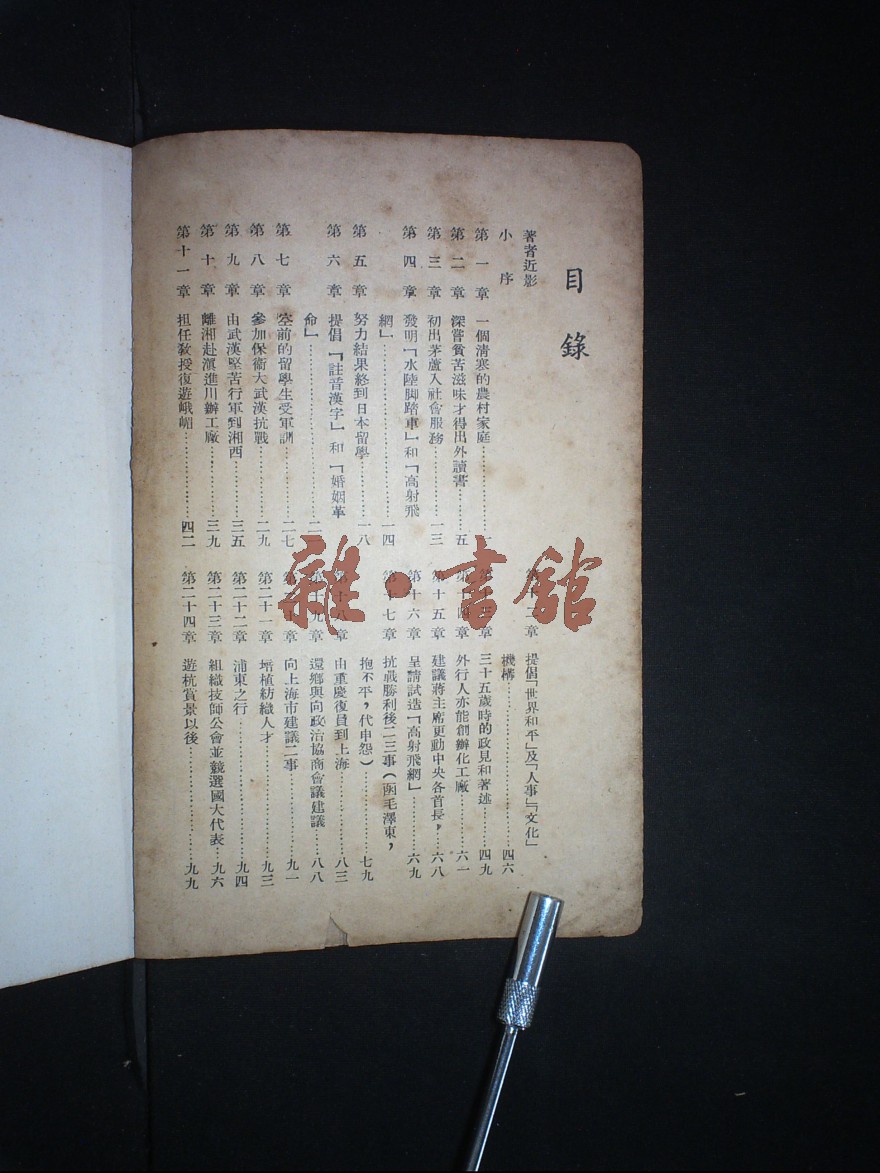 目錄
著者近影
小序
第一章 一個清寒的農村家庭………一
第二章 深嘗貧苦滋味才得出外讀書………五
第三章 初出茅蘆入社會服務………一三
第四章 發明「水陸脚踏車」和「高射飛
網」………一四
第五章 努力結果終到日本留學………一八
第六章 提倡「註音漢字」和「婚姻革
命」………二
第七章 空前的留學生受軍訓………二七
第八章 參加保衞大武漢抗戰………二九
第九章 由武漢堅苦行軍到湘西………三五
第十章 離湘赴滇進川辦工廠………三九
第十一章 担任教授復遊峨嵋………四二
第十二章 提倡「世界和平」及「人事」「文化」
機構………四六
三十五歲時的政見和著述………四九
外行人亦能創辦化工廠………六一
第十五章 建議蔣主席更動中央各首長，………六八
第十六章 呈請試造「高射飛網」………六九
第十七章 抗戰勝利後二三事（函毛澤東，
抱不平，代申怨）………七九
第十八章 由重慶復員到上海………八三
第十九章 還鄉與向政治協商會議建議………八八
第二十章 向上海市建議二事………九一
第二十一章 培植紡織人才………九三
第二十二章 浦東之行………九四
第二十三章 組織技師公會並競選國大代表………九六
第二十四章 遊杭賞景以後………九九
雜·書館